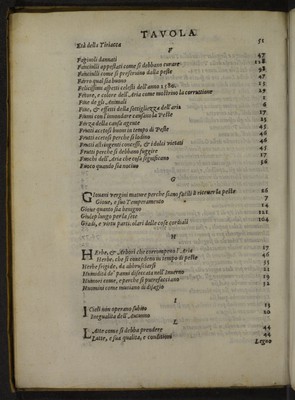 TAVOLA.
Età della Tiriacca 51
F
Fagiuoli dannati 47
Fanciulli appestati come si debbano curare 128
Fanciulli come si preseruino dalla peste 98
Farro qual sia buono 47
Felicissimi aspetti celesti dell'anno 1580.
Fetore, e colore dell'Aria come mostrino la corruttione 29
Fine de gli Animali
Fine, & effetti della sottigliezza dell'aria 6
Fiumi con l'innondare causano la Peste 17
Forza della causa agente
Frutti acetosi buoni in tempo di Peste 45
Frutti acetosi perche si lodino 46
Frutti astringenti concessi, & i dolci vietati 48
Frutti perche si debbano fuggire 45
Fuochi dell'Aria che cosa significano 17
Fuoco quando sia nociuo 56
G
Giouani vergini mature perche siano facili à riceuer la peste 26
Gioue, e suo Temperamento 7
Gioue quanto sia benigno
Giulep lungo per la sete 121
Gradi, e virtù particolari delle cose cordiali 104
H
Herbe, & Arbori che corrompono l'Aria 17
Herbe, che si concedono in tempo di peste 46
Herbe frigide, da abbrusciarsi 53
Humidità de' panni disseccata nell'Inuerno 21
Humori come, e perche si putrefacciano 19
Huomini come muoiano di disagio 52
I
I Cieli non operano subito 13
Inegualità dell'Autunno 20
L
Latte come si debba prendere 44
Latte, e sua qualità, e conditioni 44
Legno